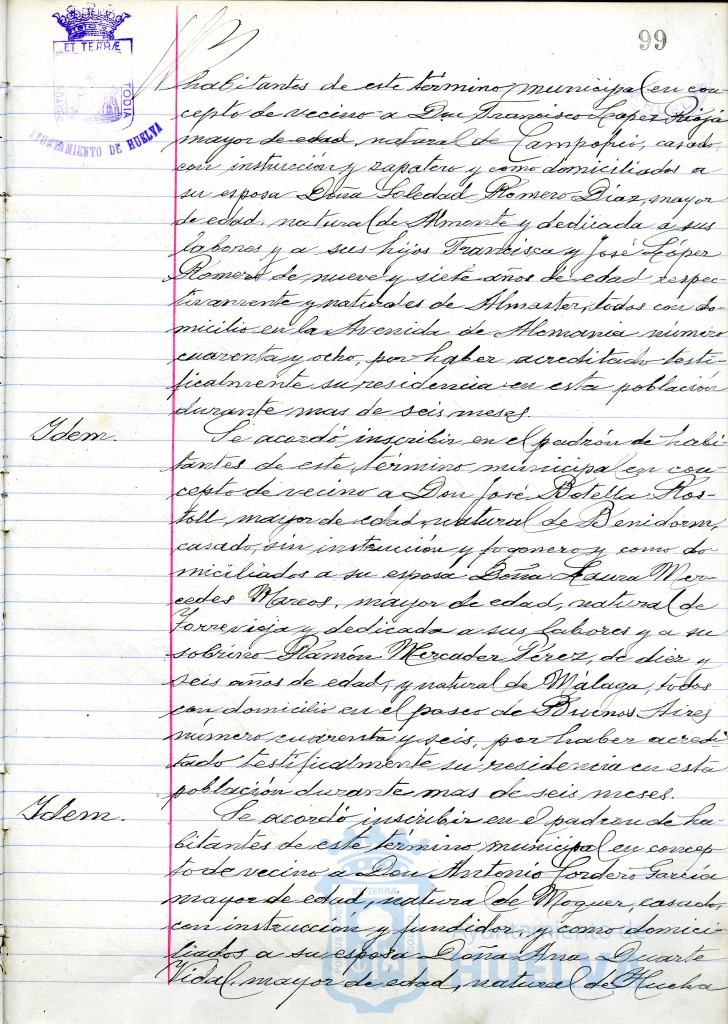 99
ET TERRÆ
PORTUS
TODIA
AYUNTAMIENTO DE HUELVA
habitantes de este término municipal en con-
cepto de vecino a Don Francisco López Rioja
mayor de edad, natural de Campofrío, casado,
con instrucción y zapatero y como domiciliados a
su esposa Doña Soledad Romero Díaz, mayor
de edad, natural de Almonte y dedicada a sus
labores y a sus hijos Francisca y José López
Romero de nueve y siete años de edad respec-
tivamente y naturales de Almaster, todos con do-
micilio en la Avenida de Alemania número
cuarenta y ocho, por haber acreditado testi-
ficalmente su residencia en esta población
durante mas de seis meses.
Idem.
Se acordó inscribir en el padrón de habi-
tantes de este término municipal en con-
cepto de vecino a Don José Botella Ros-
toll, mayor de edad, natural de Benidorm,
casado, sin instrucción y fogonero y como do-
miciliados a su esposa Doña Laura Mer-
cedes Marcos, mayor de edad, natural de
Torrevieja y dedicada a sus labores y a su
sobrino Ramón Mercader Pérez, de diez y
seis años de edad, y natural de Málaga, todos
con domicilio en el paseo de Buenos Aires
número cuarenta y seis, por haber acredi-
tado testificalmente su residencia en esta
población durante mas de seis meses.
Idem.
Se acordó inscribir en el padron de ha-
bitantes de este término municipal en concep-
to de vecino a Don Antonio Cordero García
mayor de edad, natural de Moguer, casado,
con instrucción y fundidor y como domici-
liados a su esposa Doña Ana Duarte
Vidal, mayor de edad, natural de Huelva
Ayuntamiento de
HUELVA